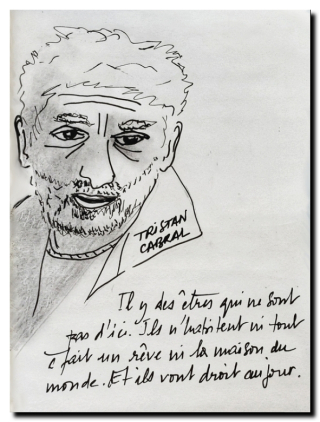 TRISTAN
CABRAL
Il y des êtres qui ne sont
pas d'ici. Ils n'habitent ni tout
à fait un rêve ni la maison du
monde. Et ils vont droit au jour.